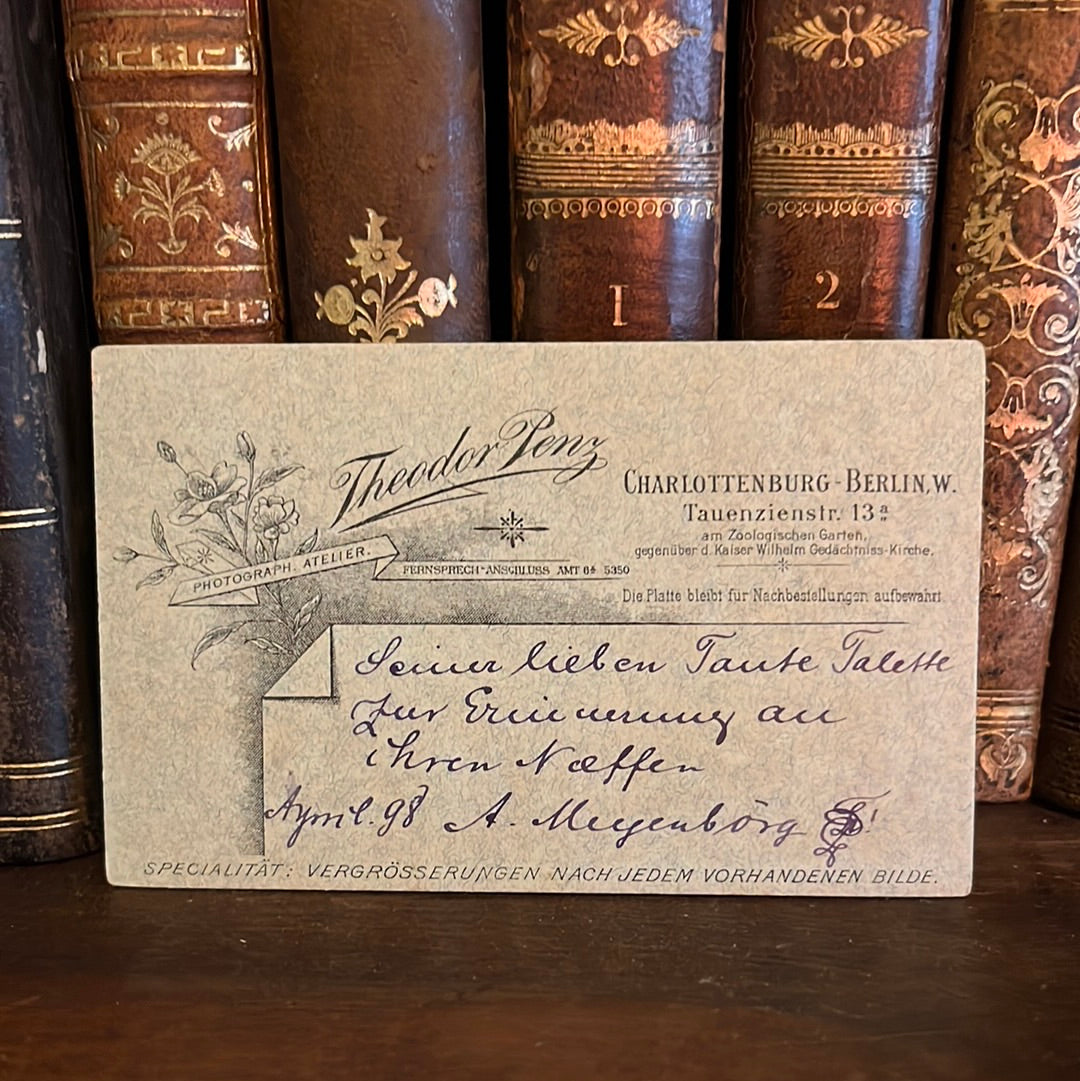 1
2
Theodor Penz
PHOTOGRAPH. ATELIER.
FERNSPRECH-ANSCHLUSS AMT 6a 5350
CHARLOTTENBURG-BERLIN, W.
Tauenzienstr. 13a
am Zoologischen Garten,
gegenüber d. Kaiser Wilhelm Gedächtniss-Kirche.
Die Platte bleibt für Nachbestellungen aufbewahrt.
Seiner lieben Tante Talette
zur Erinnerung an
ihren Næffen
April. 98 A. Meyenbörg
SPECIALITÄT: VERGRÖSSERUNGEN NACH JEDEM VORHANDENEN BILDE.